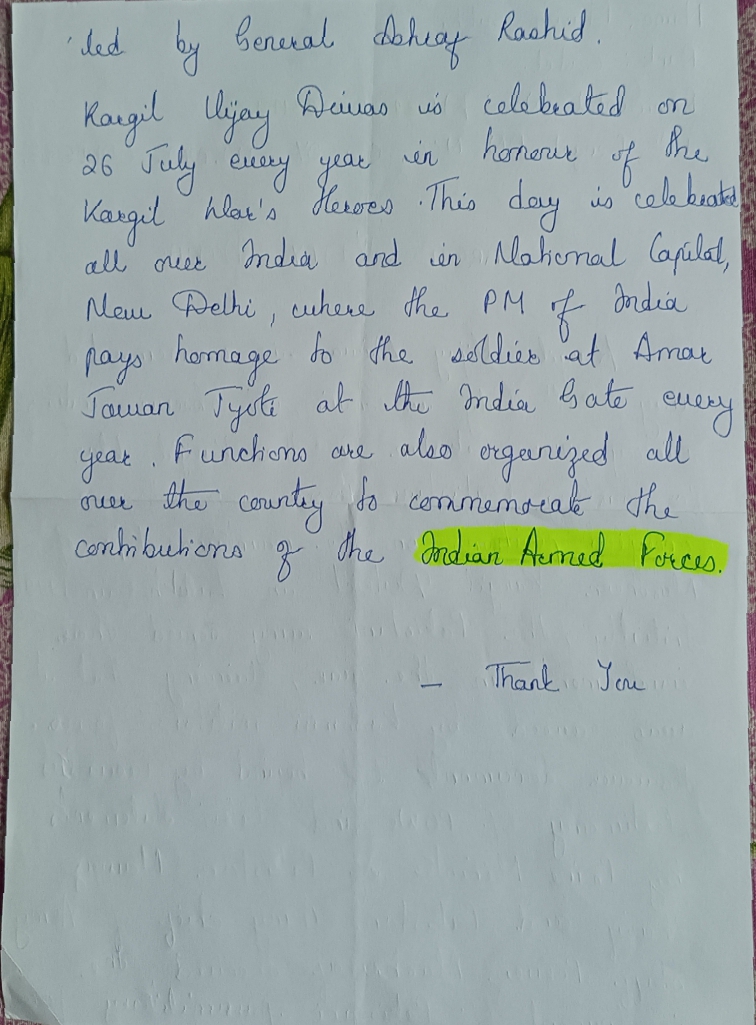 led by General Ashraf Rashid.
Kargil Vijay Diwas is celebrated on
26 July every year in honour of the
Kargil War's Heroes. This day is celebrated
all over India and in National Capital,
New Delhi, where the PM of India
pays homage to the soldier at Amar
Jawan Jyoti at the India Gate every
year. Functions are also organized all
over the country to commemorate the
contributions of the Indian Armed Forces.
- Thank You